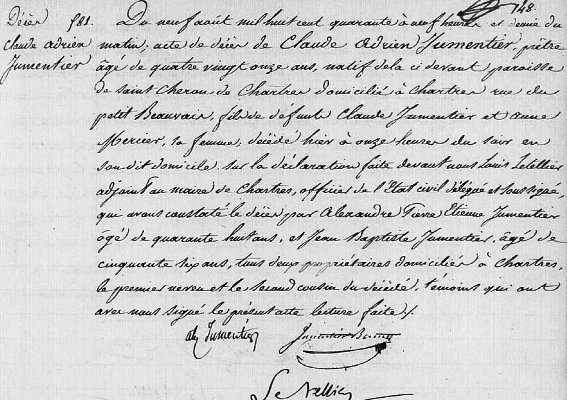 148
Décès 581.
Claude Adrien
Jumentier
Du neuf août mil huit cent quarante à neuf heures et demie du
matin; acte de décès de Claude Adrien Jumentier, prêtre
âgé de quatre vingt onze ans, natif de la ci devant paroisse
de saint Cheron de Chartres domicilié à Chartres rue du
petit Beauvais, fils de défunts Claude Jumentier et anne
Mercier, sa femme, décédé hier à onze heures du soir en
son dit domicile sur la déclaration faite devant nous Louis Letellier
adjoint au maire de Chartres, officier de l'Etat civil délégué et soussigné,
qui avons constaté le décès par Alexandre Etienne Jumentier
âgé de quarante huit ans, et Jean Baptiste Jumentier, âgé de
cinquante six ans, tous deux propriétaires domiciliés à Chartres,
le premier neveu et le second cousin du décédé, témoins qui ont
avec nous signé le présent acte lecture faite /.
Jumentier
Jumentier
Le Tellier